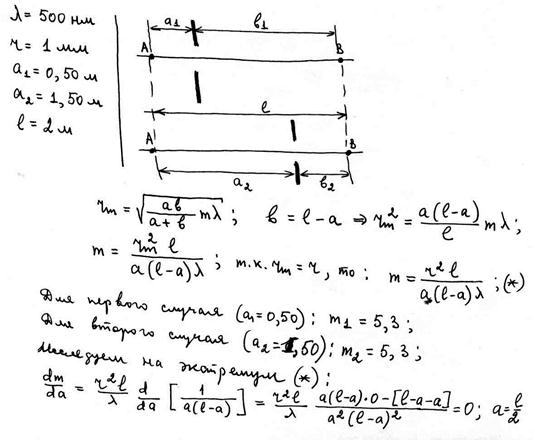 λ = 500 нм
r = 1 мм
a₁ = 0,50 м
a₂ = 1,50 м
ℓ = 2 м
a₁ b₁
A B
ℓ
A B
a₂ b₂
rₘ = √(ab/(a+b) mλ) ; b = ℓ-a ⇒ rₘ² = a(ℓ-a)/ℓ mλ ;
m = rₘ² ℓ/(a(ℓ-a)λ) ; т.к. rₘ = r, то : m = r² ℓ/(a(ℓ-a)λ) ; (*)
Для первого случая (a₁=0,50) : m₁ = 5,3 ;
Для второго случая (a₂=1,50) : m₂ = 5,3 ;
Исследуем на экстремум (*) :
dm/da = r²ℓ/λ d/da [1/(a(ℓ-a))] = r²ℓ/λ (a(ℓ-a)·0-[ℓ-a-a])/(a²(ℓ-a)²) = 0 ; a = ℓ/2